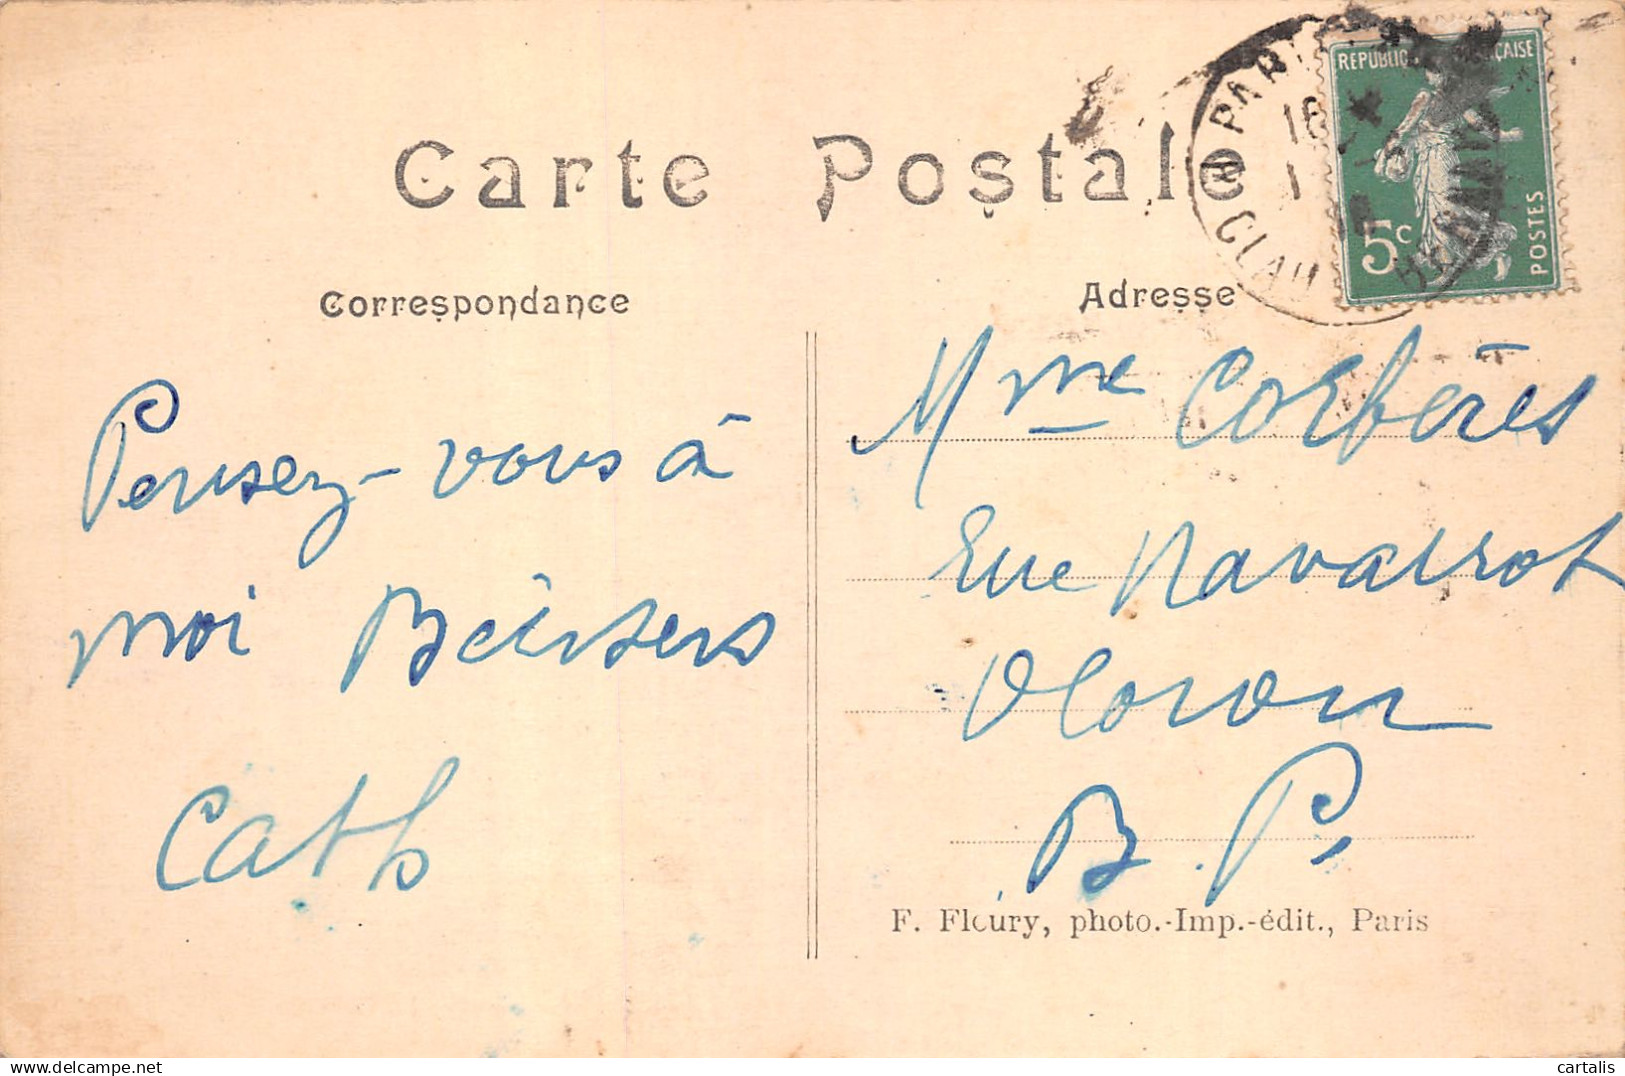 Carte Postale
Correspondance
Pensez-vous à
moi Baisers
Cath
Adresse
Mme Corbères
Rue Navarrot
Oloron
B. P.
F. Fleury, photo.-Imp.-édit., Paris
PARIS
16
CLAU BERNARD
5c
POSTES
cartalis